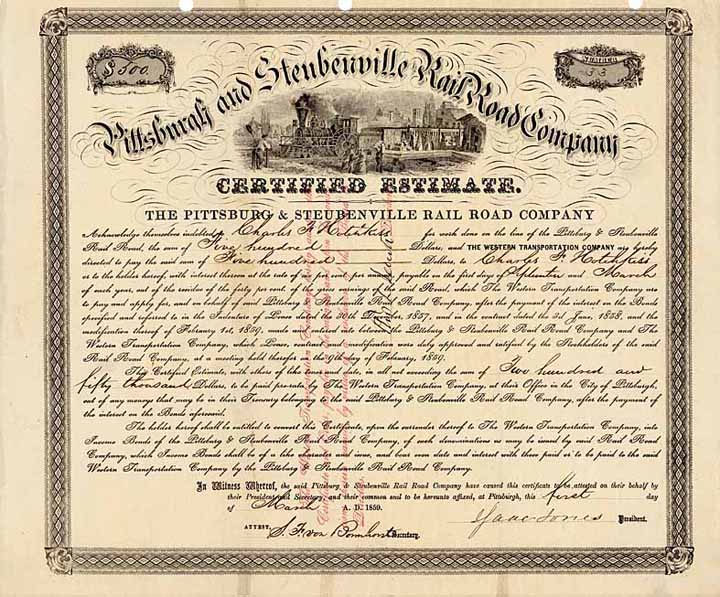 $500.
NUMBER
33
Pittsburgh and Steubenville Rail Road Company
CERTIFIED ESTIMATE.
THE PITTSBURG & STEUBENVILLE RAIL ROAD COMPANY
Acknowledge themselves indebted to Charles F. Hotchkiss for work done on the line of the Pittsburg & Steubenville
Rail Road, the sum of Five hundred Dollars, and THE WESTERN TRANSPORTATION COMPANY are hereby
directed to pay the said sum of Five hundred Dollars, to Charles F. Hotchkiss
or to the holder hereof, with interest thereon at the rate of per cent. per annum, payable on the first day of September and March
of each year, out of the residue of the forty per cent of the gross earnings of the said Road, which The Western Transportation Company are
to pay and apply for, and on behalf of said Pittsburg & Steubenville Rail Road Company, after the payment of the interest on the Bonds
specified and referred to in the Indenture of Lease dated the 30th October, 1857, and in the contract dated the 3d Jan, 1858, and the
modification thereof of February 1st, 1859, made and entered into between the Pittsburg & Steubenville Rail Road Company and The
Western Transportation Company, which Lease, contract and modification were duly approved and ratified by the Stockholders of the said
Rail Road Company, at a meeting held thereafter on the 9th day of February, 1859.
This Certified Estimate, with others of like tenor and date, in all not exceeding the sum of Two hundred and
fifty thousand Dollars, to be paid pro-rata by The Western Transportation Company, at their Office in the City of Pittsburgh,
out of any moneys that may be in their Treasury belonging to the said Pittsburg & Steubenville Rail Road Company, after the payment of
the interest on the Bonds aforesaid.
The holder hereof shall be entitled to convert the Certificate, upon the surrender thereof to The Western Transportation Company, into
Income Bonds of the Pittsburg & Steubenville Rail Road Company, of such denominations as may be issued by said Rail Road
Company, which Income Bonds shall be of a like character and issue, and bear even date and interest with those paid or to be paid to the said
Western Transportation Company by the Pittsburg & Steubenville Rail Road Company.
In Witness Whereof, the said Pittsburg & Steubenville Rail Road Company have caused this certificate to be attested on their behalf by
their President and Secretary, and their common seal to be hereunto affixed, at Pittsburgh, this first day
of March A. D. 1859.
Isaac Jones President.
ATTEST: S. F. von Bonnhorst Secretary.